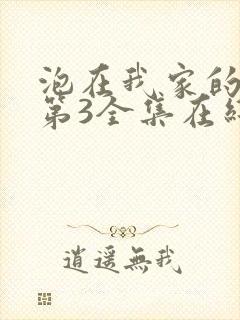 泡在我家的
第3全集在线
逍遥無我